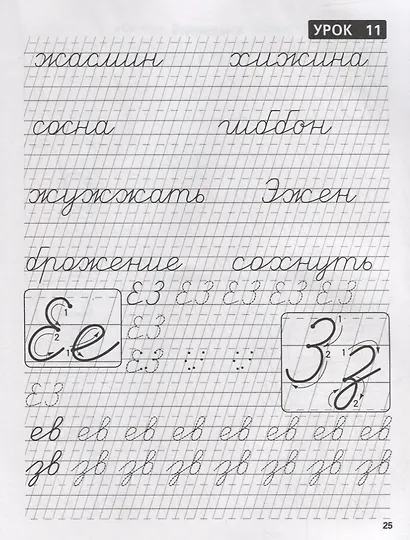 УРОК 11
жасмин хижина
сосна гиббон
жужжать Эжен
брожение сохнуть
ЕЗ ЕЗ ЕЗ ЕЗ ЕЗ
Ее 1 2 1
ЕЗ
Зз 1 2 1 2
ЕЗ
ЕЗ
ев ев ев ев ев ев ев ев
зв зв зв зв зв зв зв зв
25